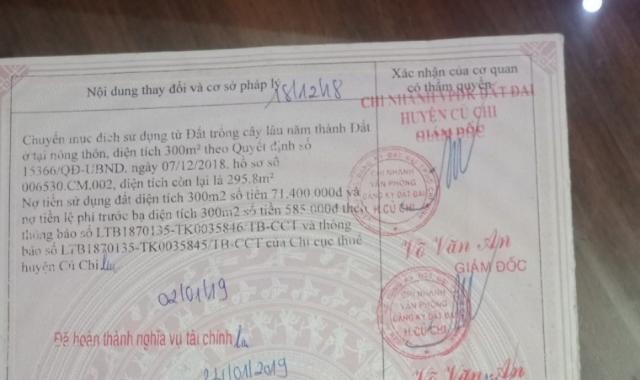 Nội dung thay đổi và cơ sở pháp lý
18/12/18
Xác nhận của cơ quan
có thẩm quyền
CHI NHÁNH VPĐK ĐẤT ĐAI
HUYỆN CỦ CHI
GIÁM ĐỐC
Chuyển mục đích sử dụng từ Đất trồng cây lâu năm thành Đất
ở tại nông thôn, diện tích 300m² theo Quyết định số
15366/QĐ-UBND, ngày 07/12/2018, hồ sơ số
006530.CM.002, diện tích còn lại là 295.8m²
Nợ tiền sử dụng đất diện tích 300m² số tiền 71.400.000đ và
nợ tiền lệ phí trước bạ diện tích 300m² số tiền 585.000đ theo
thông báo số LTB1870135-TK0035846/TB-CCT và thông
báo số LTB1870135-TK0035845/TB-CCT của Chi cục thuế
huyện Củ Chi
CHI NHÁNH
VĂN PHÒNG
ĐĂNG KÝ ĐẤT ĐAI
H.CỦ CHI
Võ Văn An
GIÁM ĐỐC
02/01/19
CHI NHÁNH
VĂN PHÒNG
ĐĂNG KÝ ĐẤT ĐAI
H.CỦ CHI
Đã hoàn thành nghĩa vụ tài chính
/01/2019
Võ Văn An